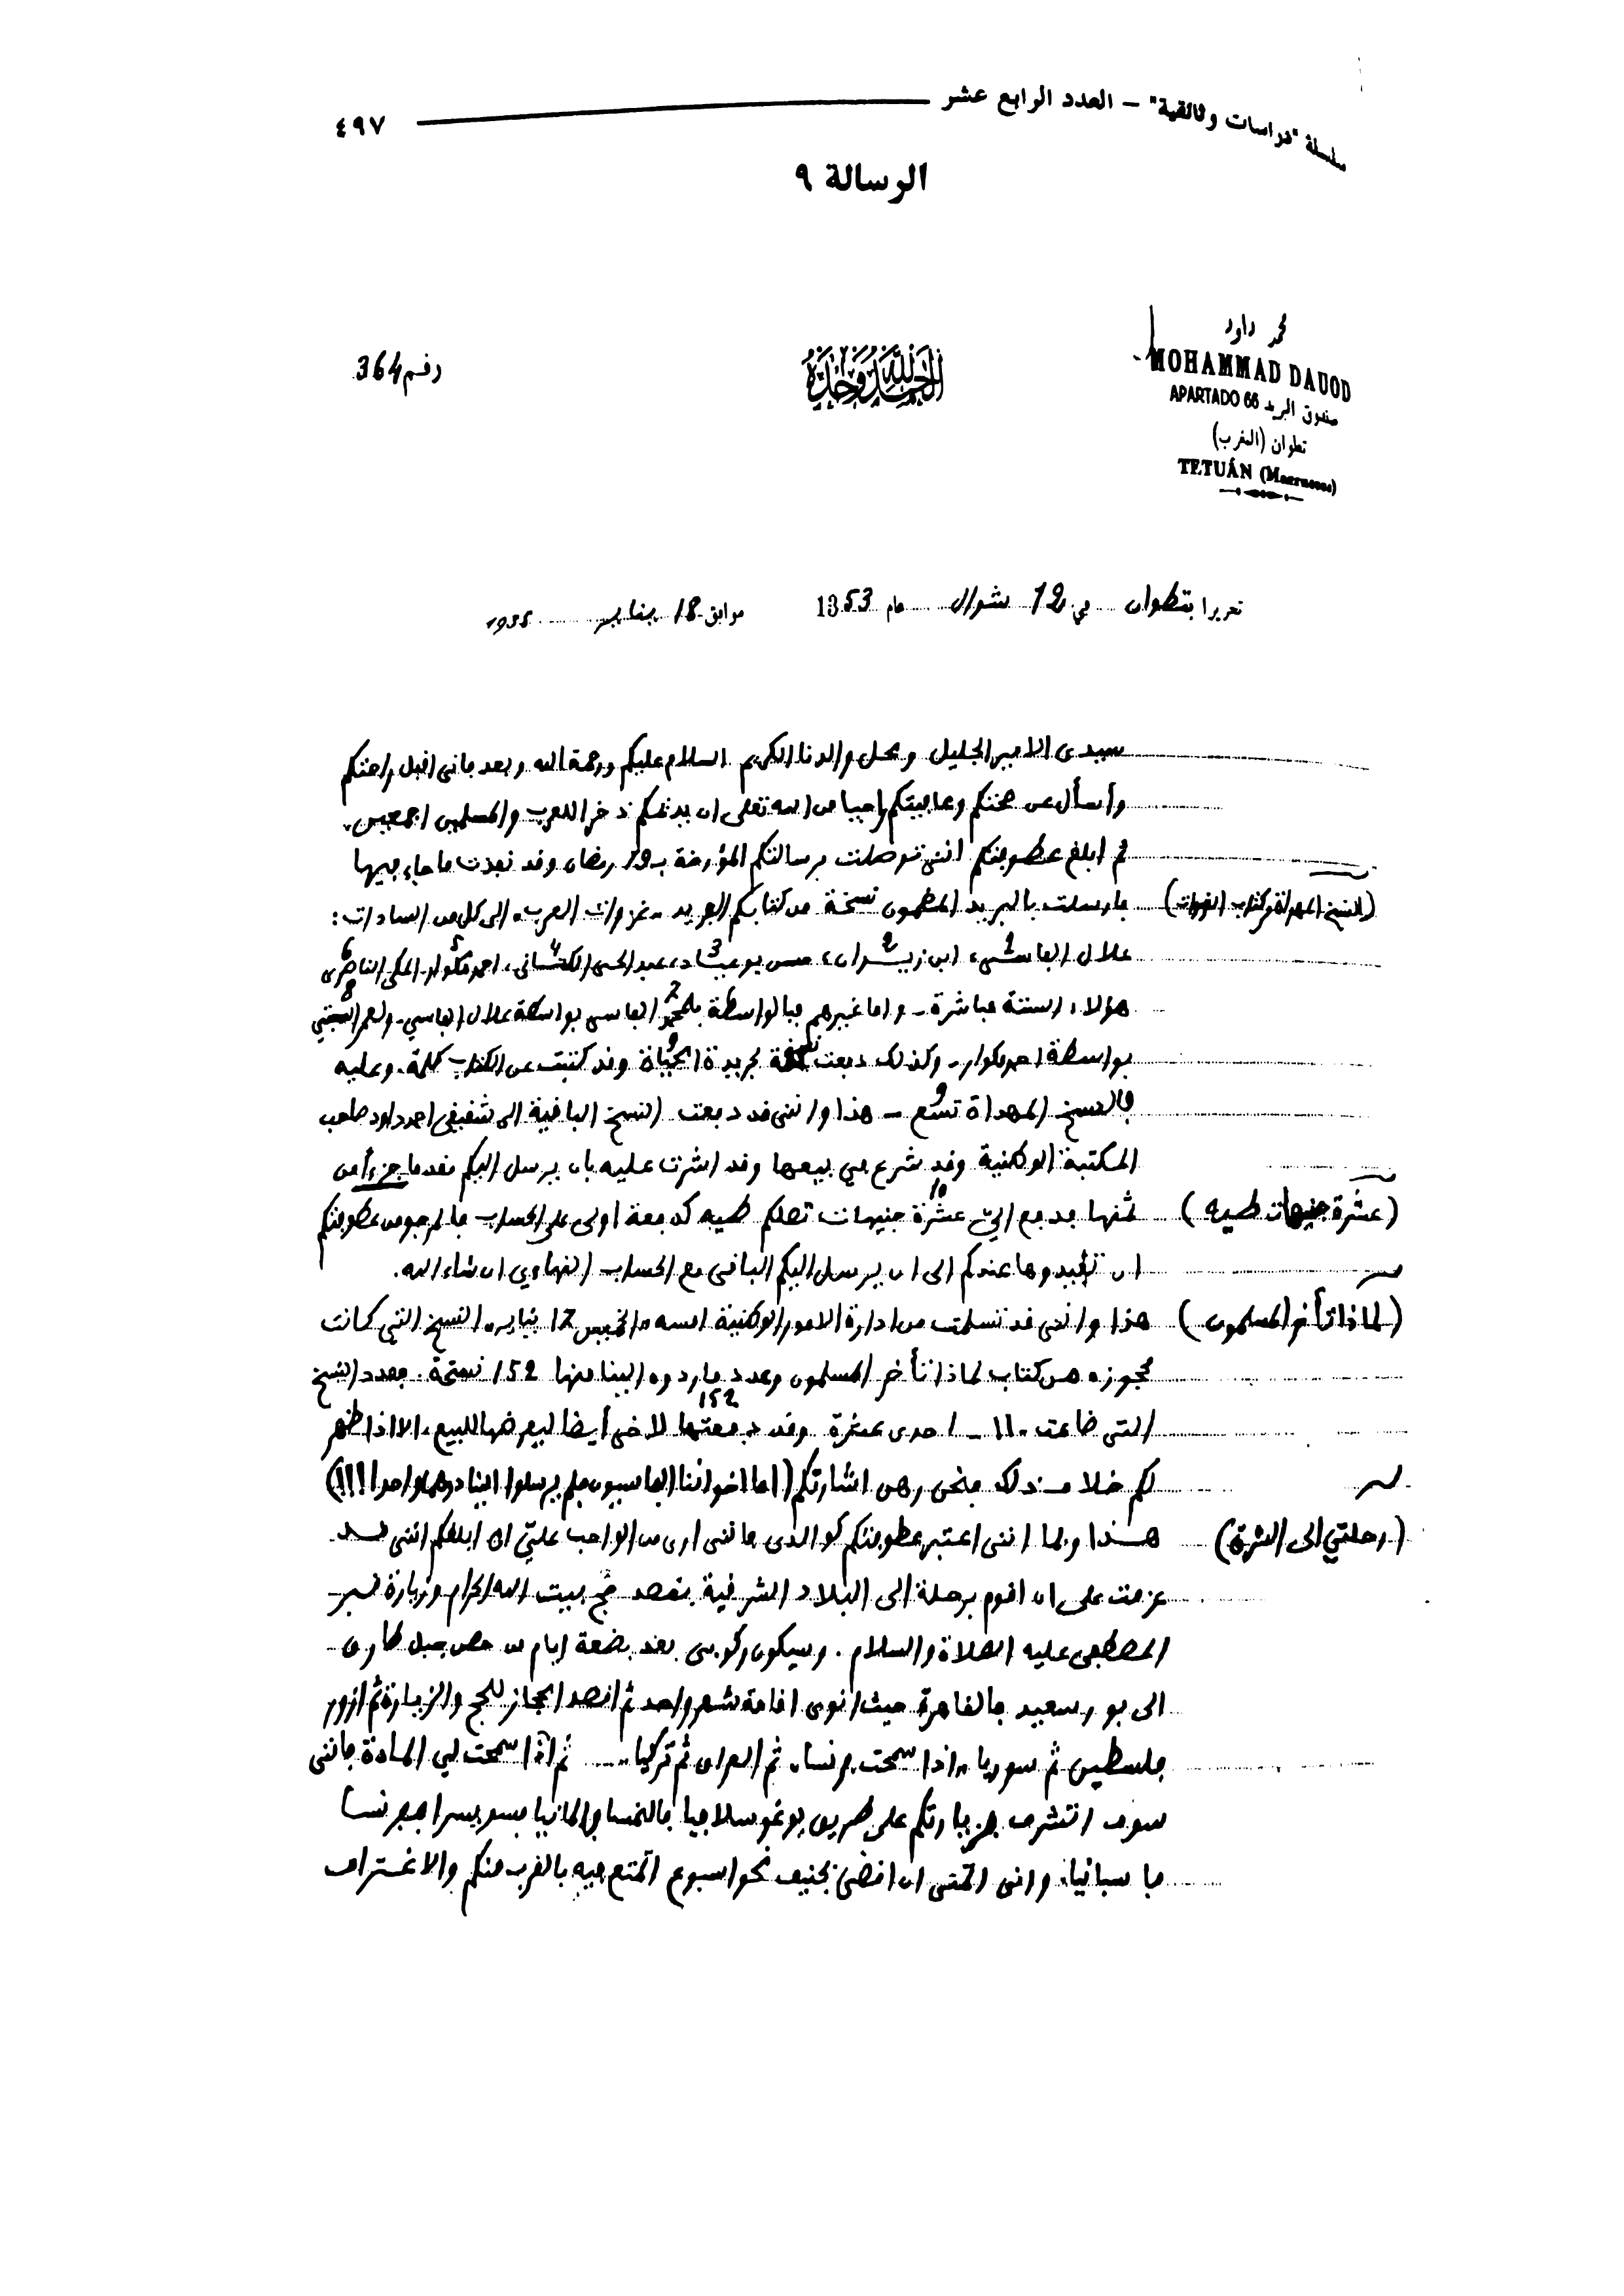 سلسلة "دراسات وثائقية" – العدد الرابع عشر
٤٩٧
الرسالة ٩
محمد داود
MOHAMMAD DAUOD
APARTADO 66 صندوق البريد
تطوان (المغرب)
TETUÁN (Marruecos)
الحمد لله وحده
رقم 364
تحريرا بتطوان في 12 شوال عام 1353 موافق 18 يناير 1935
سيدي الامير الجليل ومحل والدنا الكريم السلام عليكم ورحمة الله وبعد فاني اقبل راحتكم
وأسأل عن صحتكم وعافيتكم راجيا من الله تعلى ان يديمكم ذخرا للعرب والمسلمين اجمعين.
ثم ابلغ عطوفتكم انني توصلت برسالتكم المؤرخة ب 19 رمضان وقد نفذت ما جاء فيها
(النسخ المهداة من كتاب الغزوات) فارسلت بالبريد المضمون نسخة من كتابكم الجديد "غزوات العرب" الى كل من السادات:
علال الفاسي 1، ابن زيدان 2، حسن بوعياد 3، عبد الحي الكتاني 4، احمد مكوار 5، المكي الناصري 6
هؤلاء الستة مباشرة - واما غيرهم فبالواسطة فلمحمد 7 الفاسي بواسطة علال الفاسي - ولعمر 8
بواسطة احمد مكوار - وكذلك دفعت نسخة لجريدة الحياة 9 وقد كتبت عن الكتاب كلمة. وعليه
فالنسخ المهداة تسع 9 - هذا وانني قد دفعت النسخ الباقية الى شقيقي احمد داود صاحب
المكتبة الوطنية وقد شرع في بيعها وقد اشرت عليه بان يرسل اليكم مقدما جزءا من
(عشرة جنيهات طيه) ثمنها فدفع الي عشرة 10 جنيهات تصلكم طيه كدفعة اولى على الحساب فالمرجو من عطوفتكم
ان تقيدوها عندكم الى ان يرسل اليكم الباقي مع الحساب النهاوي ان شاء الله.
(لماذا تأخر المسلمون) هذا وانني قد تسلمت من ادارة الامور الوطنية امسه "الخميس 17 يناير" النسخ التي كانت
محجوزة من كتاب لماذا تأخر المسلمون وعدد ما ردوه الينا منها 152 نسخة. فعدد النسخ
التي ضاعت 11 - احدى عشرة وقد دفعتها 152 لاخي أيضا ليعرضها للبيع، الا اذا ظهر
لكم خلاف ذلك فنحن رهن اشارتكم (اما اخواننا الفاسيون فلم يرسلوا الينا درهما واحدا!!!)
(رحلتي الى الشرق) هذا وبما انني اعتبر عطوفتكم كوالدي فانني ارى من الواجب علي ان ابلغكم انني قد
عزمت على ان اقوم برحلة الى البلاد الشرقية بقصد حج بيت الله الحرام وزيارة قبر
المصطفى عليه الصلاة والسلام. وسيكون ركوبي بعد بضعة ايام من جبل طارق
الى بور سعيد فالقاهرة حيث انوي اقامة شهر واحد ثم اقصد الحجاز للحج والزيارة ثم ازور
فلسطين ثم سوريا "اذا سمحت فرنسا" ثم العراق ثم تركيا..... ثم اذا سمحت لي المادة فانني
سوف اتشرف بزيارتكم على طريق يوغوسلافيا فالنمسا والمانيا فسويسرا ففرنسا
فاسبانيا. وانى اتمنى ان اقضي بجنيف نحو اسبوع اتمتع فيه بالقرب منكم والاغتراف